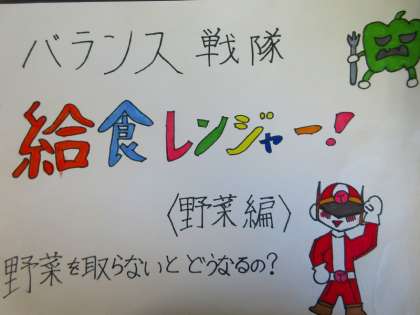 バランス戦隊
給食レンジャー!
〈野菜編〉
野菜を取らないとどうなるの?